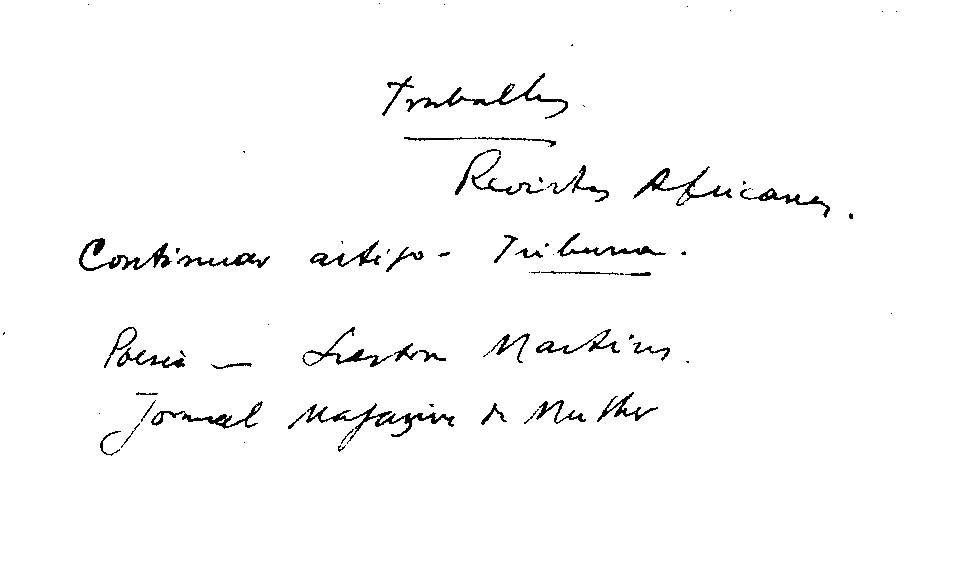 Trabalhos
Revistas Africanas.
Continuar artigo - Tribuna.
Poesia — Martins.
Jornal Magazine da Mulher